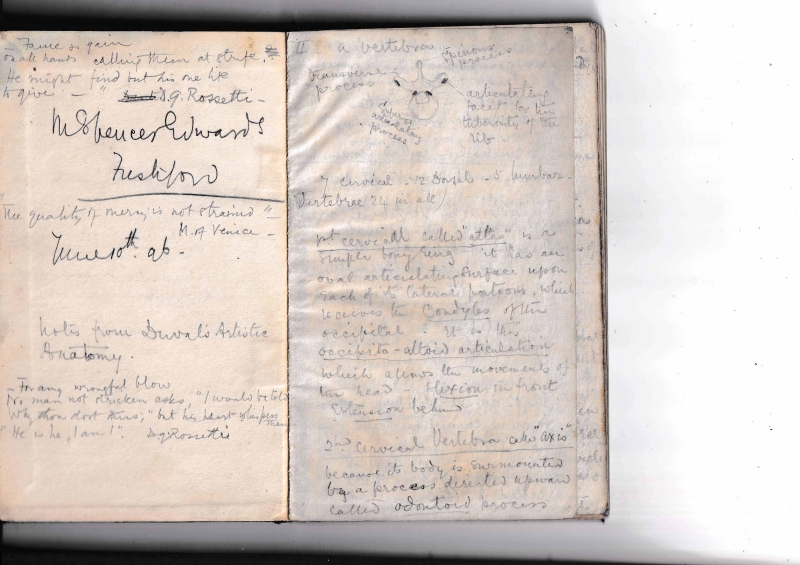 - Fame or gain
on all hands calling them at strife.
He might find out his one life
to give - " D.G. Rossetti -
M Spencer Edwards
Freshford
"The quality of mercy is not strained"
M. of Venice -
June 10th. 96 -
Notes from Duval's Artistic
Anatomy.
- For any wrongful blow
No man not stricken asks, "I would be told
Why thou dost thus," but his heart whispers then
"He is he, I am I". D.G. Rossetti
II a vertebra
spinous process
transverse process
articulating
facet for the
tuberosity of the
rib -
articulating
process
7 cervical - 12 Dorsal - 5 lumbar -
Vertebrae 24 in all)
1st cervical called "atlas" is a
simple bony ring it has an
oval articulating surface upon
each of its lateral portions, which
receives the Condyles of the
occipital. It is this
occipito-altoid articulation
which allows the movements of
the head - flexion in front
Extension behind
2nd cervical Vertebra called "axis"
because its body is surmounted
by a process directed upward
called odontoid process